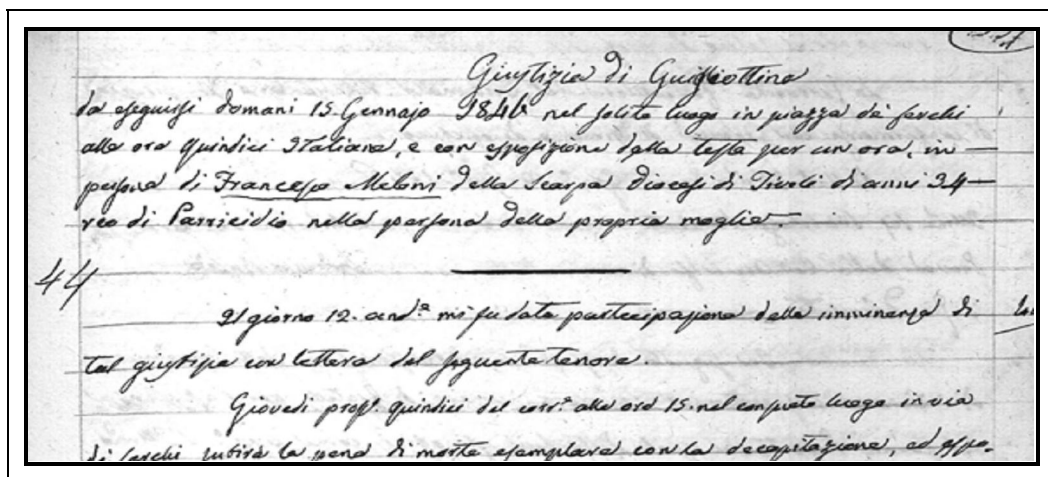 Giustizia di Guigliottina
da eseguirsi domani 15. Gennajo 1846 nel solito luogo in piazza de' cerchi
alle ore quindici Italiane, e con esposizione della testa per un ora, in
persona di Francesco Meloni della Scarpa Diocesi di Tivoli di anni 34
reo di Parricidio nella persona della propria moglie
44
Il giorno 12. andᵉ mi fu data partecipazione della imminenza di
tal giustizia con lettera del seguente tenore.
Giovedi prosˢ. quindici del corrᵉ. alle ore 15. nel consueto luogo in via
di cerchi subirà la pena di morte esemplare con la decapitazione, ed espo-